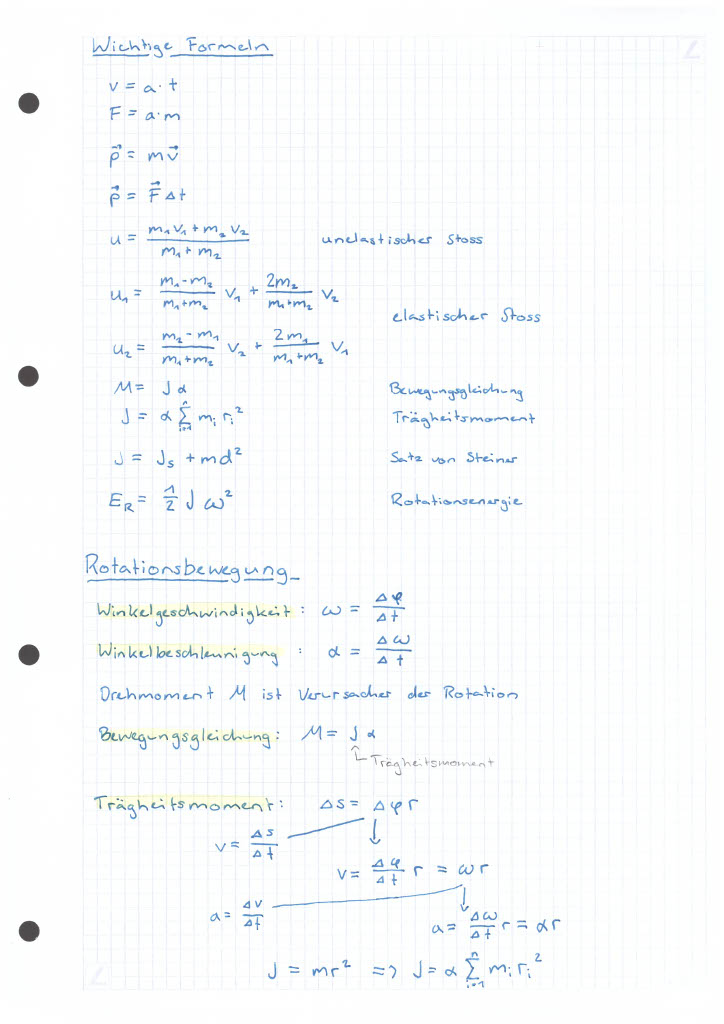 Wichtige Formeln
v = a · t
F = a · m
p⃗ = m v⃗
p⃗ = F⃗ Δt
u = (m₁v₁ + m₂v₂)/(m₁ + m₂) unelastischer Stoss
u₁ = (m₁ - m₂)/(m₁ + m₂) v₁ + 2m₂/(m₁ + m₂) v₂
elastischer Stoss
u₂ = (m₂ - m₁)/(m₁ + m₂) v₂ + 2m₁/(m₁ + m₂) v₁
M = J α Bewegungsgleichung
J = α ∑ⁿᵢ₌₁ mᵢ rᵢ² Trägheitsmoment
J = Jₛ + md² Satz von Steiner
E_R = 1/2 J ω² Rotationsenergie
Rotationsbewegung
Winkelgeschwindigkeit : ω = Δφ/Δt
Winkelbeschleunigung : α = Δω/Δt
Drehmoment M ist Verursacher der Rotation
Bewegungsgleichung: M = J α
Trägheitsmoment
Trägheitsmoment: Δs = Δφ r
v = Δs/Δt
v = Δφ/Δt r = ωr
a = Δv/Δt
a = Δω/Δt r = αr
J = mr² => J = α ∑ⁿᵢ₌₁ mᵢ rᵢ²